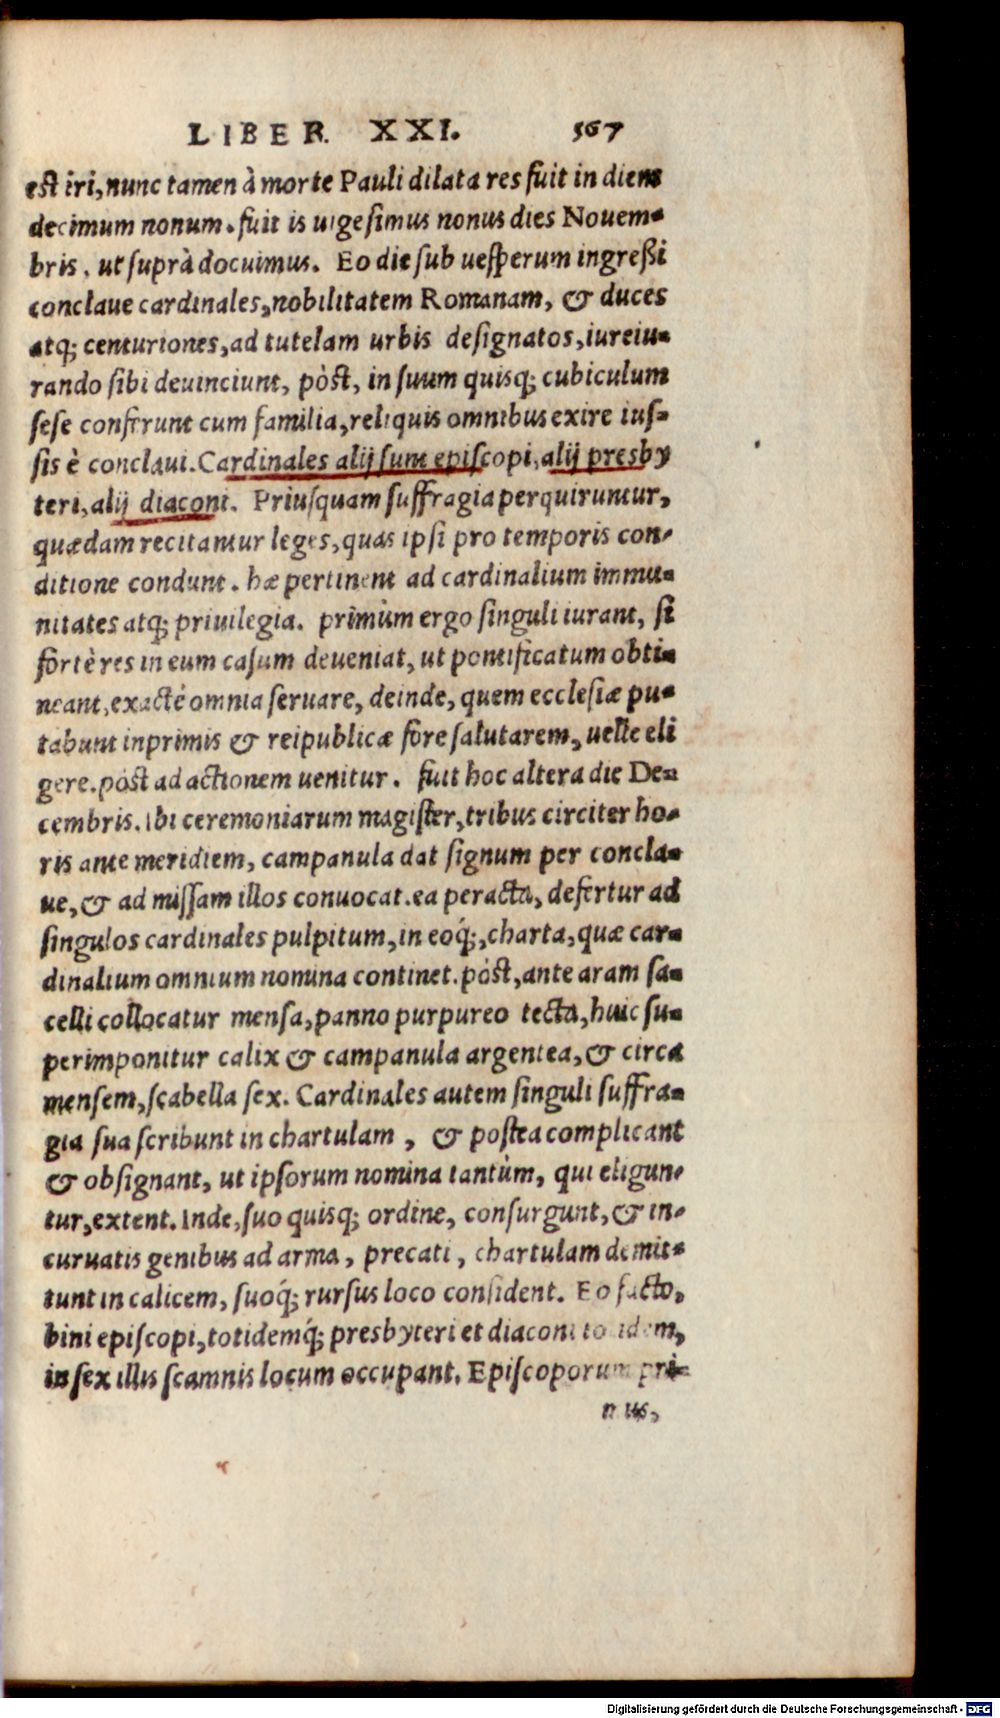 LIBER XXI. 567
est iri, nunc tamen à morte Pauli dilata res fuit in diem
decimum nonum. fuit is uigesimus nonus dies Nouem-
bris, ut suprà docuimus. Eo die sub uesperum ingreßi
conclaue cardinales, nobilitatem Romanam, & duces
atq; centuriones, ad tutelam urbis designatos, iureiu-
rando sibi deuinciunt, pòst, in suum quisq; cubiculum
sese conferunt cum familia, reliquis omnibus exire ius-
sis è conclaui. Cardinales alij sunt episcopi, alij presby
teri, alij diaconi. Priusquam suffragia perquiruntur,
quædam recitantur leges, quas ipsi pro temporis con-
ditione condunt. hæ pertinent ad cardinalium immu-
nitates atq; priuilegia. primùm ergo singuli iurant, si
fortè res in eum casum deueniat, ut pontificatum obti-
neant, exactè omnia seruare, deinde, quem ecclesiæ pu-
tabunt inprimis & reipublicæ fore salutarem, uelle eli
gere. pòst ad actionem uenitur. fuit hoc altera die De-
cembris. Ibi ceremoniarum magister, tribus circiter ho-
ris ante meridiem, campanula dat signum per concla-
ue, & ad missam illos conuocat. ea peracta, defertur ad
singulos cardinales pulpitum, in eoq́;, charta, quæ car-
dinalium omnium nomina continet. pòst, ante aram sa-
celli collocatur mensa, panno purpureo tecta, huic su-
perimponitur calix & campanula argentea, & circa
mensem, scabella sex. Cardinales autem singuli suffra-
gia sua scribunt in chartulam, & postea complicant
& obsignant, ut ipsorum nomina tantùm, qui eligun-
tur, extent. Inde, suo quisq; ordine, consurgunt, & in-
curuatis genibus ad arma, precati, chartulam demit-
tunt in calicem, suoq́; rursus loco consident. Eo facto,
bini episcopi, totidemq́; presbyteri et diaconi totidem,
in sex illis scamnis locum occupant. Episcoporum pri-
mus,
Digitalisierung gefördert durch die Deutsche Forschungsgemeinschaft - DFG